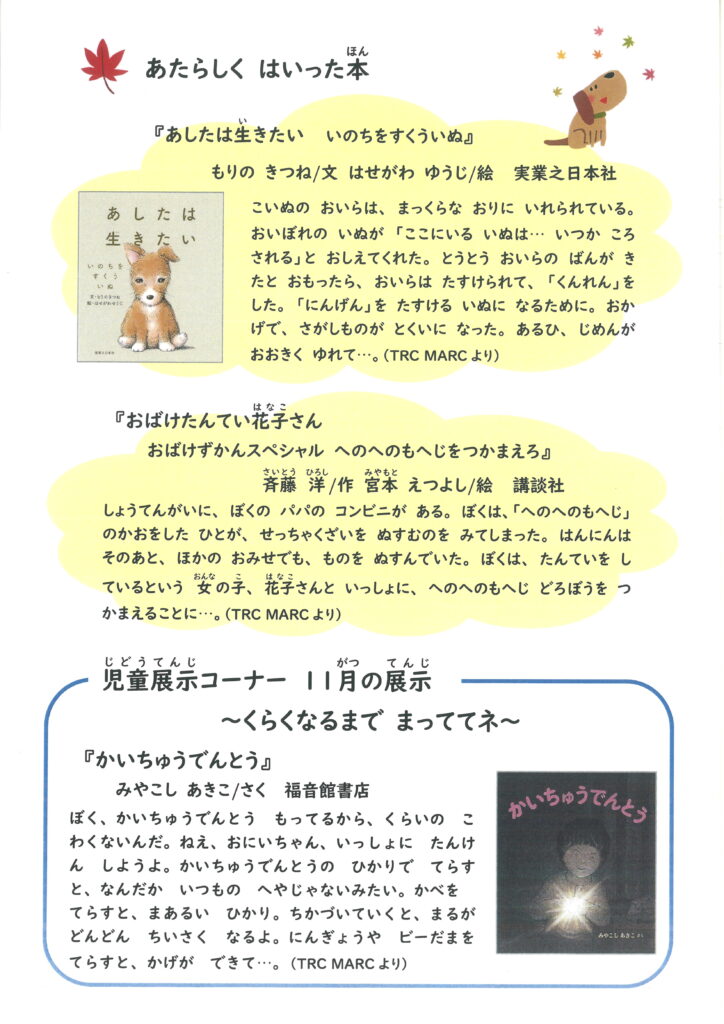 あたらしく はいった本
ほん
『あしたは生きたい いのちをすくういぬ』
い
もりの きつね/文 はせがわ ゆうじ/絵 実業之日本社
あしたは
生きたい
いのちを
すくう
いぬ
文・もりのきつね
絵・はせがわゆうじ
実業之日本社
こいぬの おいらは、まっくらな おりに いれられている。
おいぼれの いぬが「ここにいる いぬは… いつか ころ
される」と おしえてくれた。とうとう おいらの ばんが き
たと おもったら、おいらは たすけられて、「くんれん」を
した。「にんげん」を たすける いぬに なるために。おか
げで、さがしものが とくいに なった。あるひ、じめんが
おおきく ゆれて…。(TRC MARCより)
『おばけたんてい花子さん
はなこ
おばけずかんスペシャル へのへのもへじをつかまえろ』
さいとう ひろし みやもと
斉藤 洋/作 宮本 えつよし/絵 講談社
しょうてんがいに、ぼくの パパの コンビニが ある。ぼくは、「へのへのもへじ」
のかおをした ひとが、せっちゃくざいを ぬすむのを みてしまった。はんにんは
そのあと、ほかの おみせでも、ものを ぬすんでいた。ぼくは、たんていを し
おんな こ はなこ
ているという 女の子、花子さんと いっしょに、へのへのもへじ どろぼうを つ
かまえることに…。(TRC MARCより)
じどうてんじ がつ てんじ
児童展示コーナー 11月の展示
～くらくなるまで まっててネ～
『かいちゅうでんとう』
みやこし あきこ/さく 福音館書店
ぼく、かいちゅうでんとう もってるから、くらいの こ
わくないんだ。ねえ、おにいちゃん、いっしょに たんけ
ん しようよ。かいちゅうでんとうの ひかりで てらす
と、なんだか いつもの へやじゃないみたい。かべを
てらすと、まあるい ひかり。ちかづいていくと、まるが
どんどん ちいさく なるよ。にんぎょうや ビーだまを
てらすと、かげが できて…。(TRC MARCより)
かいちゅうでんとう
みやこし あきこ さく